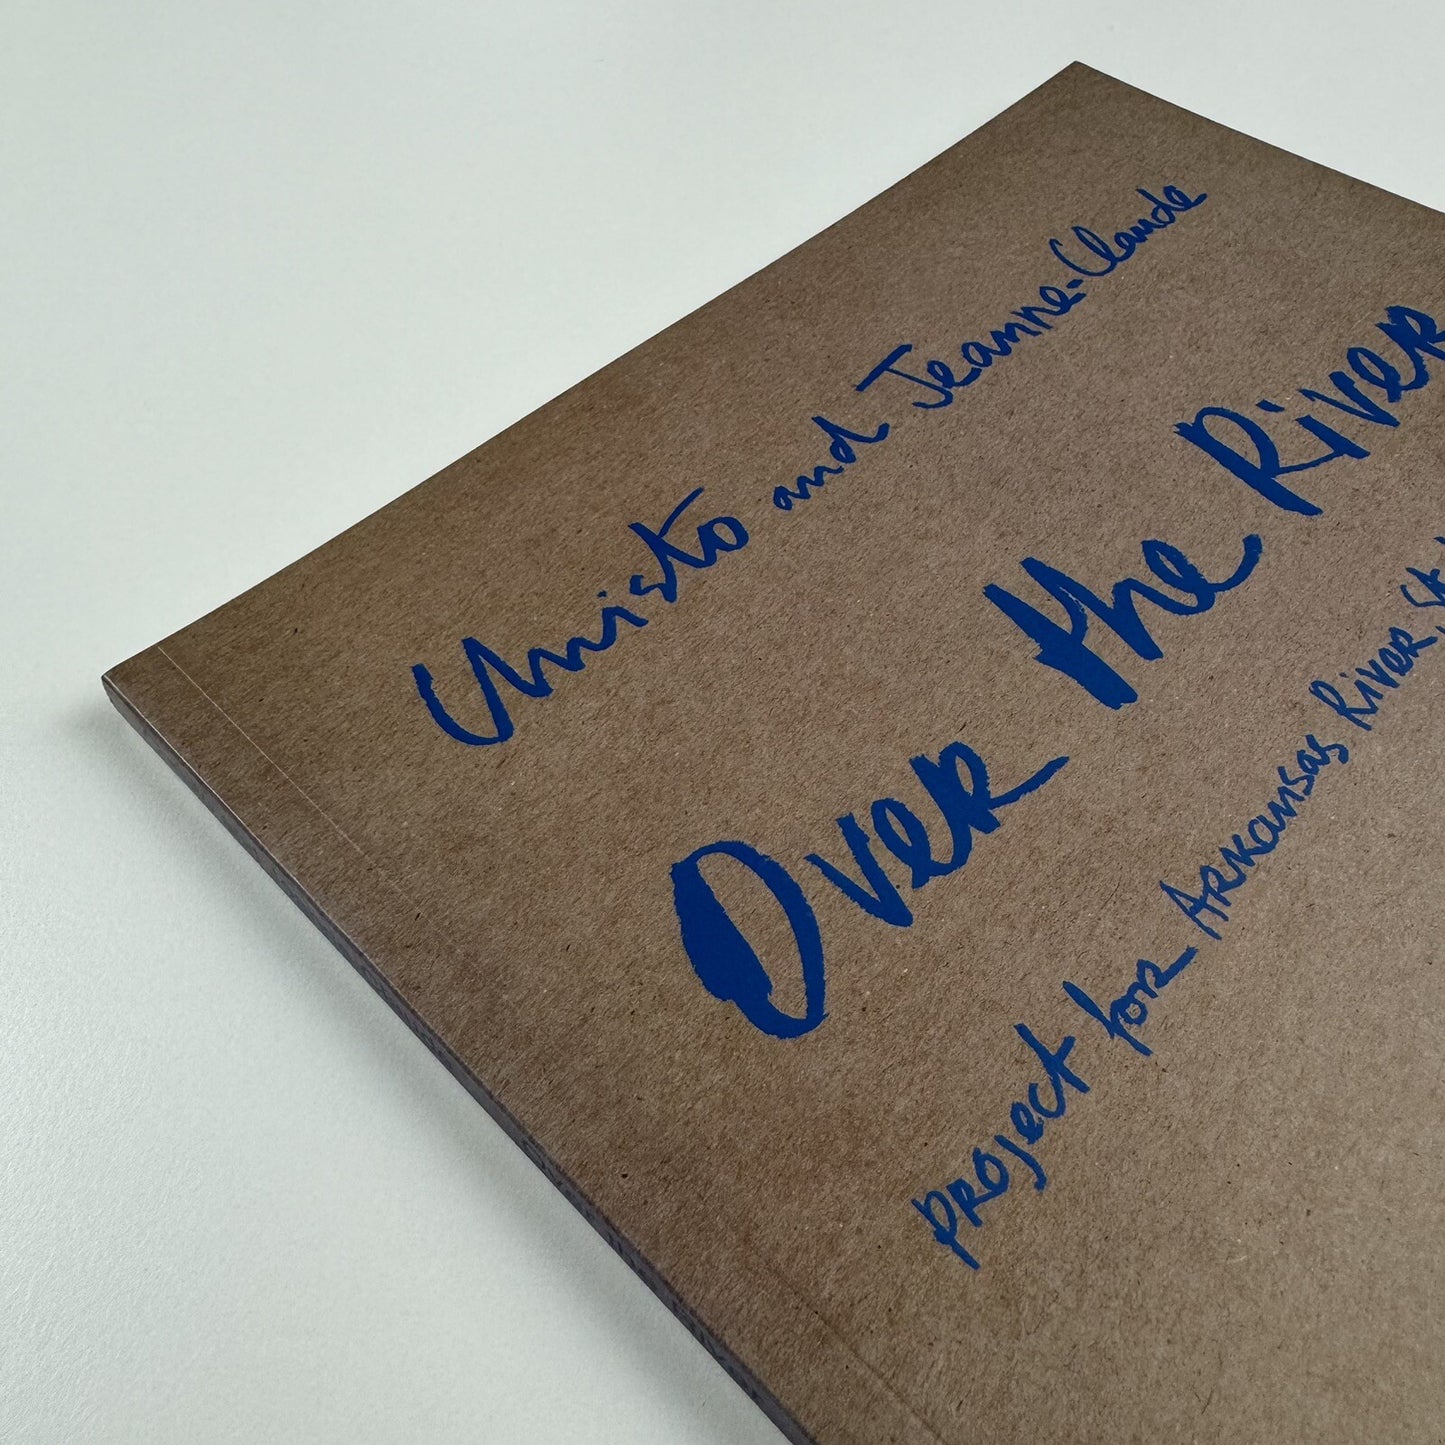 Christo and Jeanne-Claude
Over the River
project for Arkansas River, St